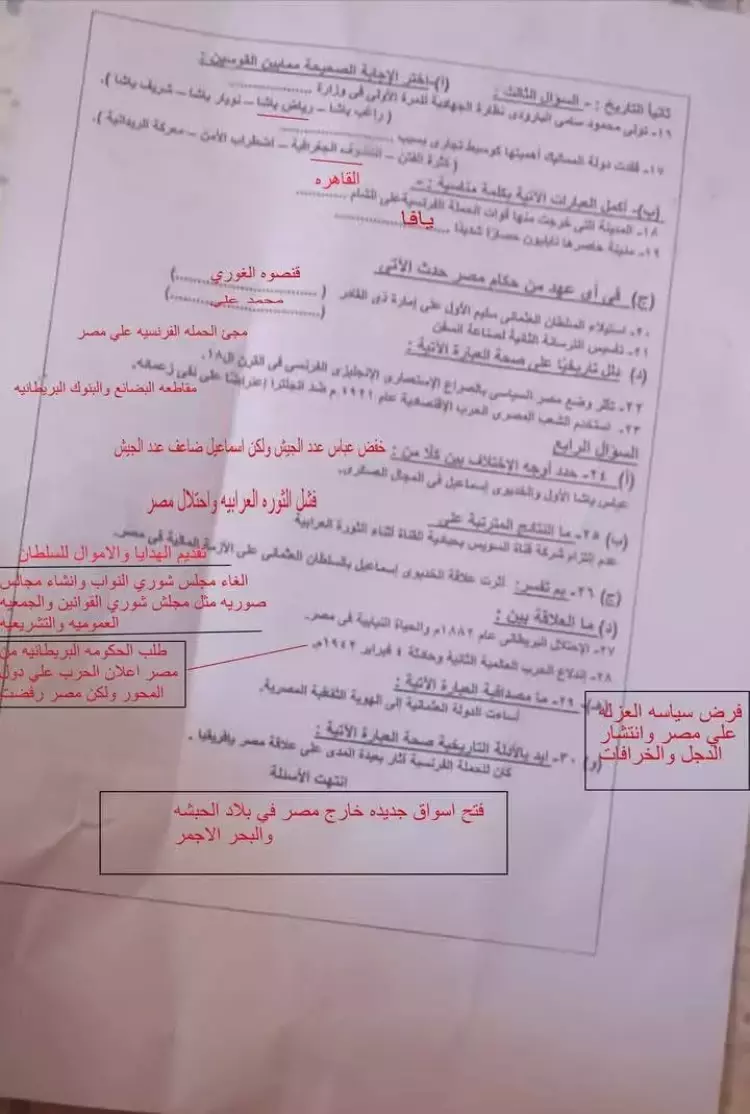 ثانياً التاريخ : - السؤال الثالث : (أ)- اختر الإجابة الصحيحة ممابين القوسين :
١٦- تولى محمود سامى البارودى نظارة الجهادية للمرة الأولى فى وزارة ..................
( راغب باشا – رياض باشا – نوبار باشا – شريف باشا ).
١٧- فقدت دولة المماليك أهميتها كوسيط تجارى بسبب ..................
( كثرة الفتن – الكشوف الجغرافية – اضطراب الأمن – معركة الريدانية ).
(ب)- أكمل العبارات الآتية بكلمة مناسبة :-
القاهره
١٨- المدينة التى خرجت منها قوات الحملة الفرنسية على الشام ..........
يافا
١٩- مدينة حاصرها نابليون حصارًا شديدًا ..................
(ج) فى أى عهد من حكام مصر حدث الآتى
٢٠- استيلاء السلطان العثمانى سليم الأول على إمارة ذى القادر
قنصوه الغوري
(..................)
٢١- تأسيس الترسانة الثانية لصناعة السفن
محمد علي
(..................)
(د) دلل تاريخيًا على صحة العبارة الآتية :
مجئ الحمله الفرنسيه علي مصر
٢٢- تأثر وضع مصر السياسى بالصراع الإستعمارى الإنجليزى الفرنسى فى القرن ال١٨.
مقاطعه البضائع والبنوك البريطانيه
٢٣- استخدم الشعب المصرى الحرب الإقتصادية عام ١٩٢١ م ضد انجلترا إعتراضًا على نفى زعمائه.
السؤال الرابع
(أ) ٢٤- حدد أوجه الإختلاف بين كلًا من :
خفض عباس عدد الجيش ولكن اسماعيل ضاعف عدد الجيش
عباس باشا الأول والخديوى إسماعيل فى المجال العسكرى.
(ب) ٢٥- ما النتائج المترتبة على
فشل الثوره العرابيه واحتلال مصر
عدم إلتزام شركة قناة السويس بحيادية القناة أثناء الثورة العرابية
(ج) ٢٦- بم تفسر: أثرت علاقة الخديوى إسماعيل بالسلطان العثمانى على الأزمة المالية فى مصر.
تقديم الهدايا والاموال للسلطان
(د) ما العلاقة بين :
٢٧- الإحتلال البريطانى عام ١٨٨٢م والحياة النيابية فى مصر.
الغاء مجلس شوري النواب وانشاء مجالس
صوريه مثل مجلش شوري القوانين والجمعيه
العموميه والتشريعيه
٢٨- إندلاع الحرب العالمية الثانية وحادثة ٤ فبراير ١٩٤٢م.
طلب الحكومه البريطانيه من
مصر اعلان الحرب علي دول
المحور ولكن مصر رفضت
(هـ)- ٢٩- ما مصداقية العبارة الآتية :
أساءت الدولة العثمانية إلى الهوية الثقفية المصرية.
فرض سياسه العزله
علي مصر وانتشار
الدجل والخرافات
(و) ٣٠- ايد بالأدلة التاريخية صحة العبارة الآتية :
كان للحملة الفرنسية آثار بعيدة المدى على علاقة مصر بإفريقيا .
انتهت الأسئلة
فتح اسواق جديده خارج مصر في بلاد الحبشه
والبحر الاجمر